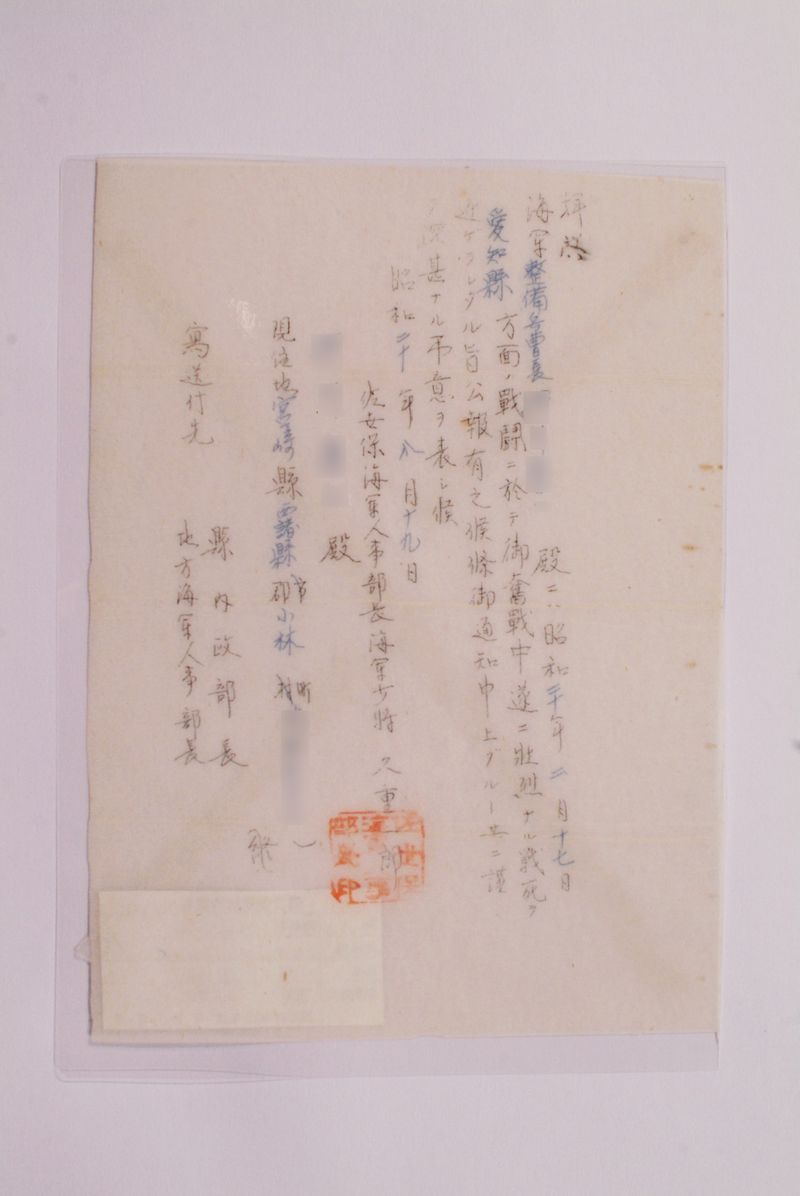 拝啓
海軍整備兵曹長 殿ニハ昭和二十年二月十七日
愛知縣方面ノ戰闘ニ於テ御奮戰中遂ニ壯烈ナル戰死ヲ
近ケラレタル旨公報有之候條御通知申上グルト共ニ謹
テ深甚ナル弔意ヲ表シ候
昭和二十年八月十九日
佐世保海軍人事部長海軍少將 久重一郎
殿
現住地宮崎縣西諸縣郡市小林町村
寫送付先
縣内政部長
地方海軍人事部長